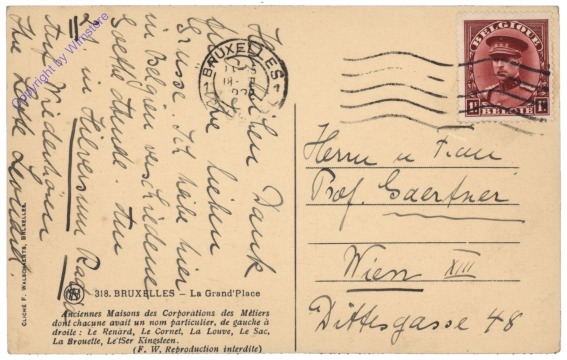 Herzlichen Dank
für Ihre lieben
Grüsse. Ich
in Belgien verschiedene
Goethe
11/2 in Hilversum Radio
Auf Wiederhören
Ihr
Herrn u Frau
Prof. Gaertner
Wien XIII
Dittesgasse 48
BRUXELLES
BELGIQUE
1F 1F
BELGIË
318. BRUXELLES – La Grand'Place
Anciennes Maisons des Corporations des Métiers
dont chacune avait un nom particulier, de gauche à
droite : Le Renard, Le Cornet, La Louve, Le Sac,
La Brouette, Le tSer Kingsteen.
(F. W. Reproduction interdite)
CLICHÉ F. WALSCHAERTS, BRUXELLES.
Copyright by Wimstore